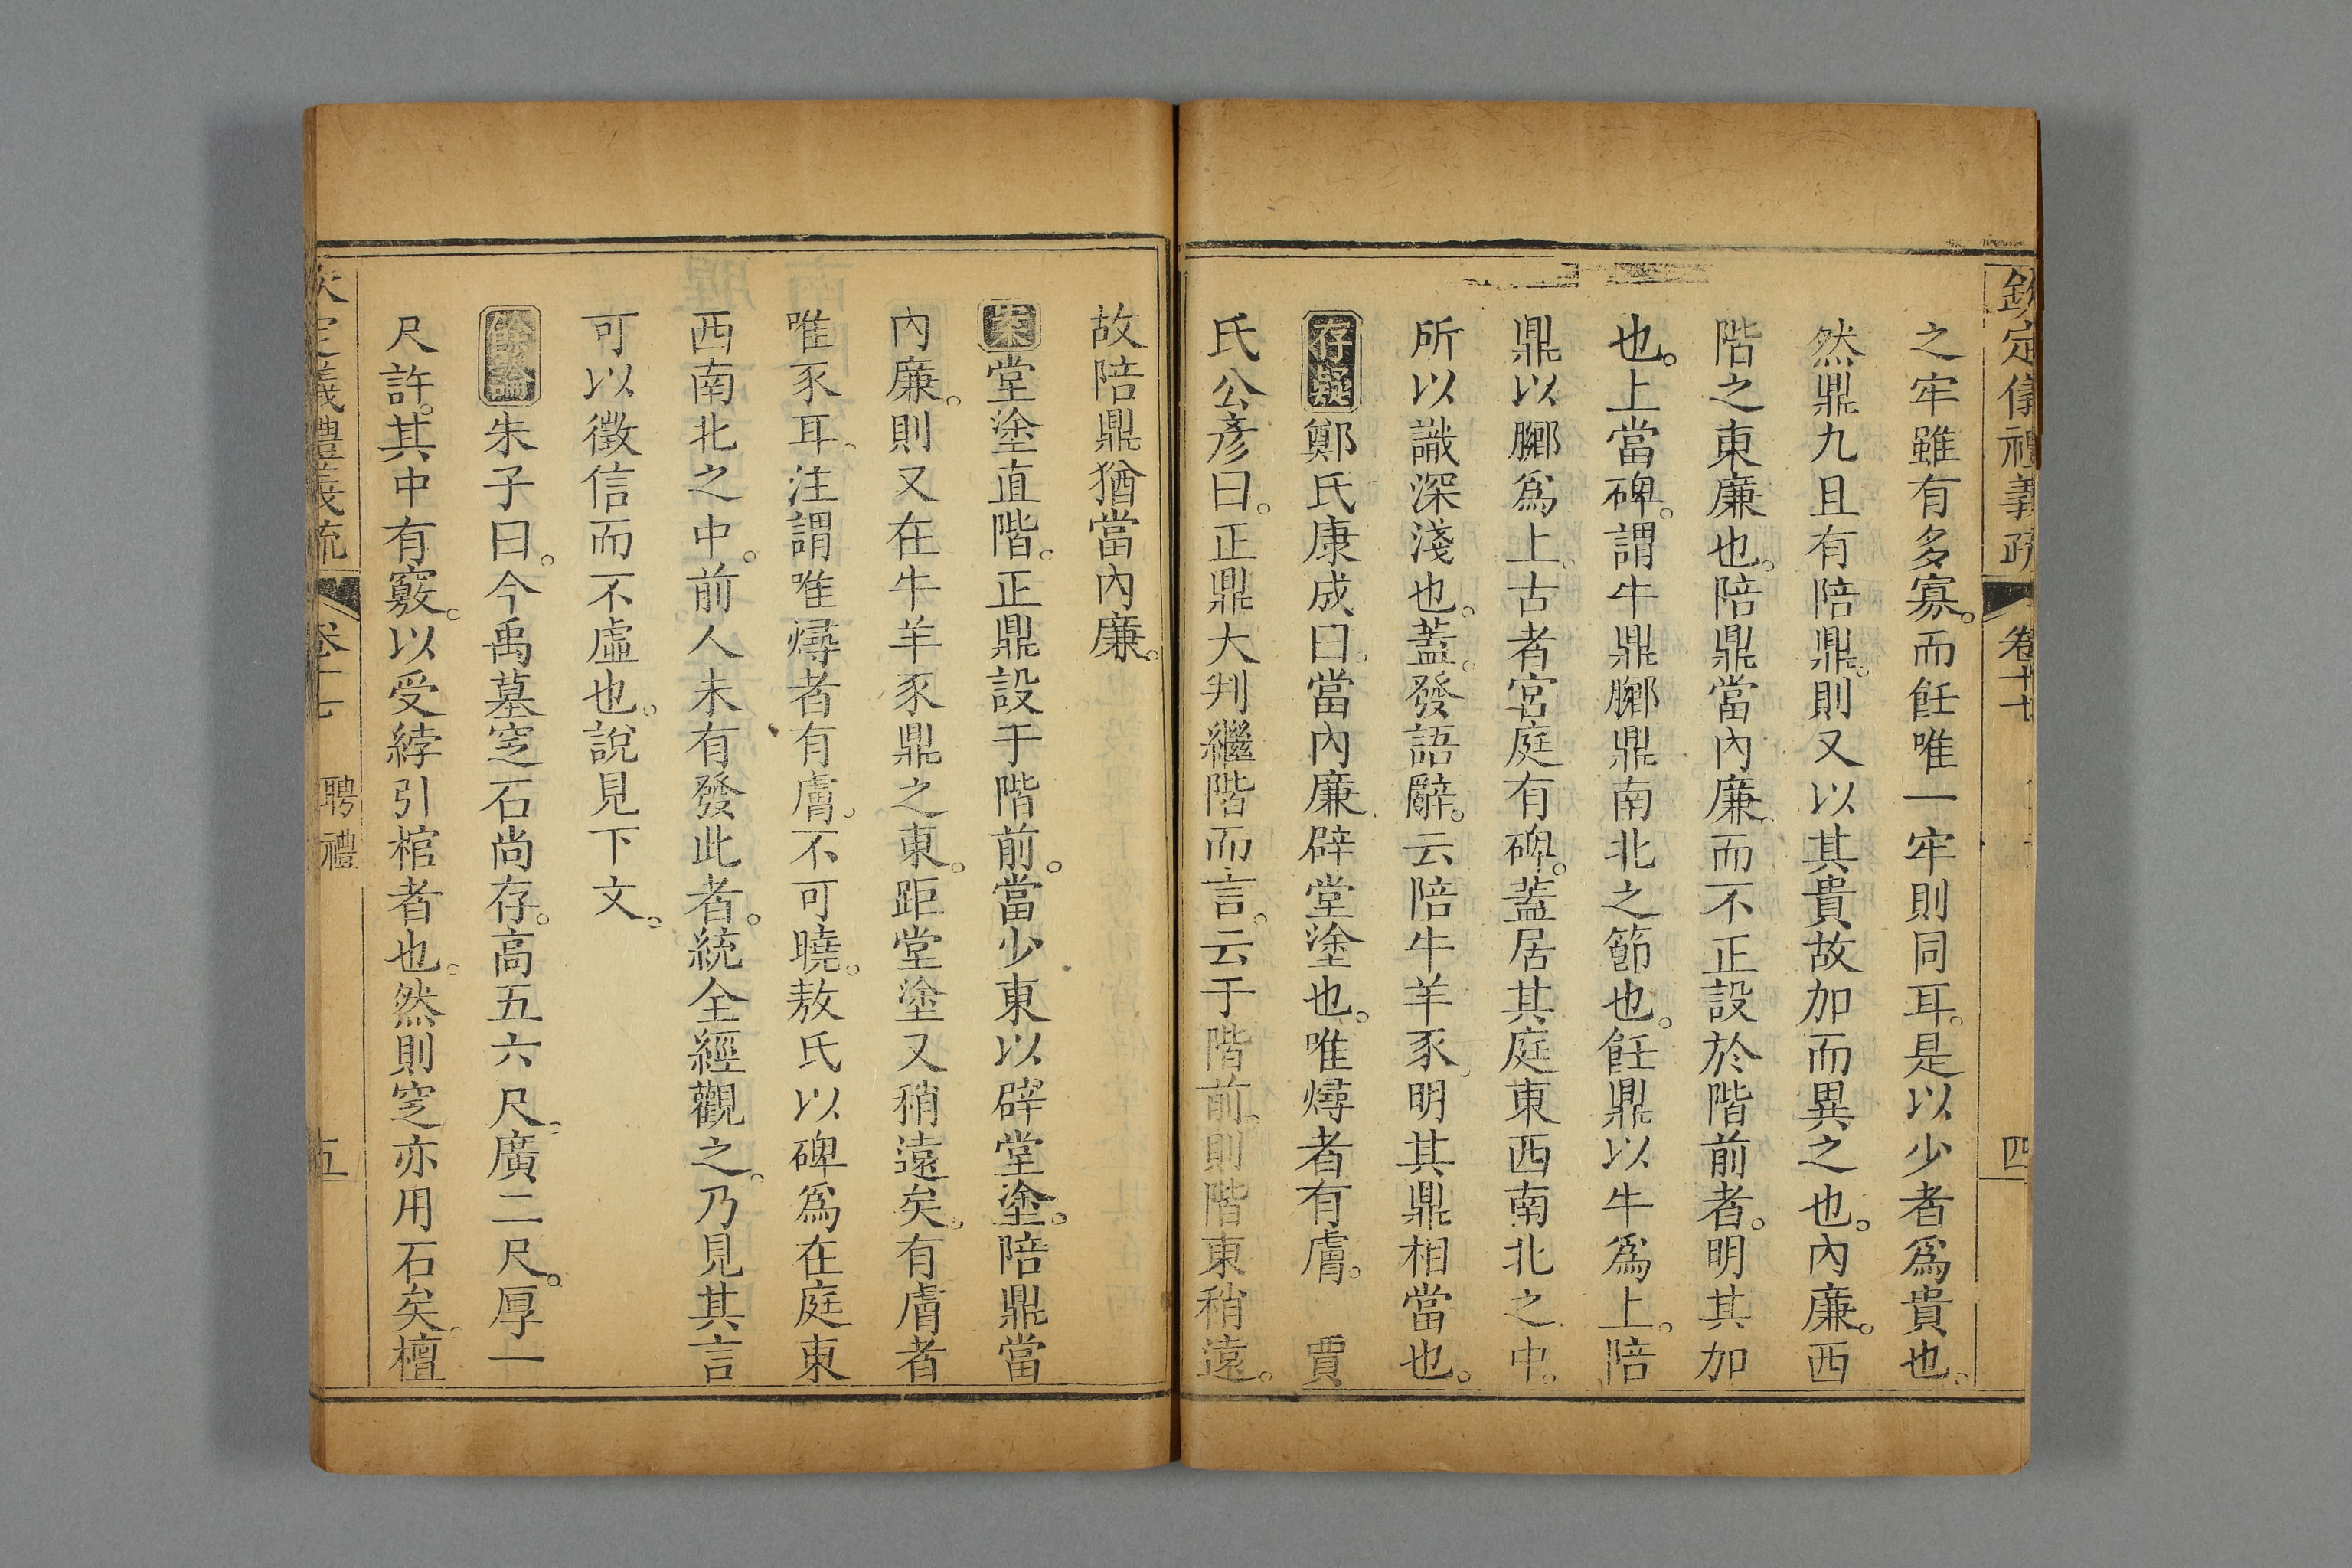 欽定儀禮義疏 卷十七 四
之牢雖有多寡。而飪唯一牢則同耳。是以少者爲貴也。
然鼎九且有陪鼎。則又以其貴故加而異之也。內廉。西
階之東廉也。陪鼎當內廉。而不正設於階前者。明其加
也。上當碑。謂牛鼎膷鼎南北之節也。飪鼎以牛爲上。陪
鼎以膷爲上。古者宮庭有碑。蓋居其庭東西南北之中。
所以識深淺也。蓋。發語辭。云陪牛羊豕。明其鼎相當也。
存疑鄭氏康成曰。當內廉辟堂塗也。唯燖者有膚。 賈
氏公彥曰。正鼎大判繼階而言。云于階前。則階東稍遠。
故陪鼎猶當內廉。
案堂塗直階。正鼎設于階前。當少東以辟堂塗。陪鼎當
內廉。則又在牛羊豕鼎之東。距堂塗又稍遠矣。有膚者
唯豕耳。注謂唯燖者有膚。不可曉。敖氏以碑爲在庭東
西南北之中。前人未有發此者。統全經觀之。乃見其言
可以徵信而不虛也。說見下文。
餘論朱子曰。今禹墓窆石尚存。高五六尺。廣二尺。厚一
尺許。其中有竅。以受綍引棺者也。然則窆亦用石矣。檀
欽定儀禮義疏 卷十七 聘禮 五